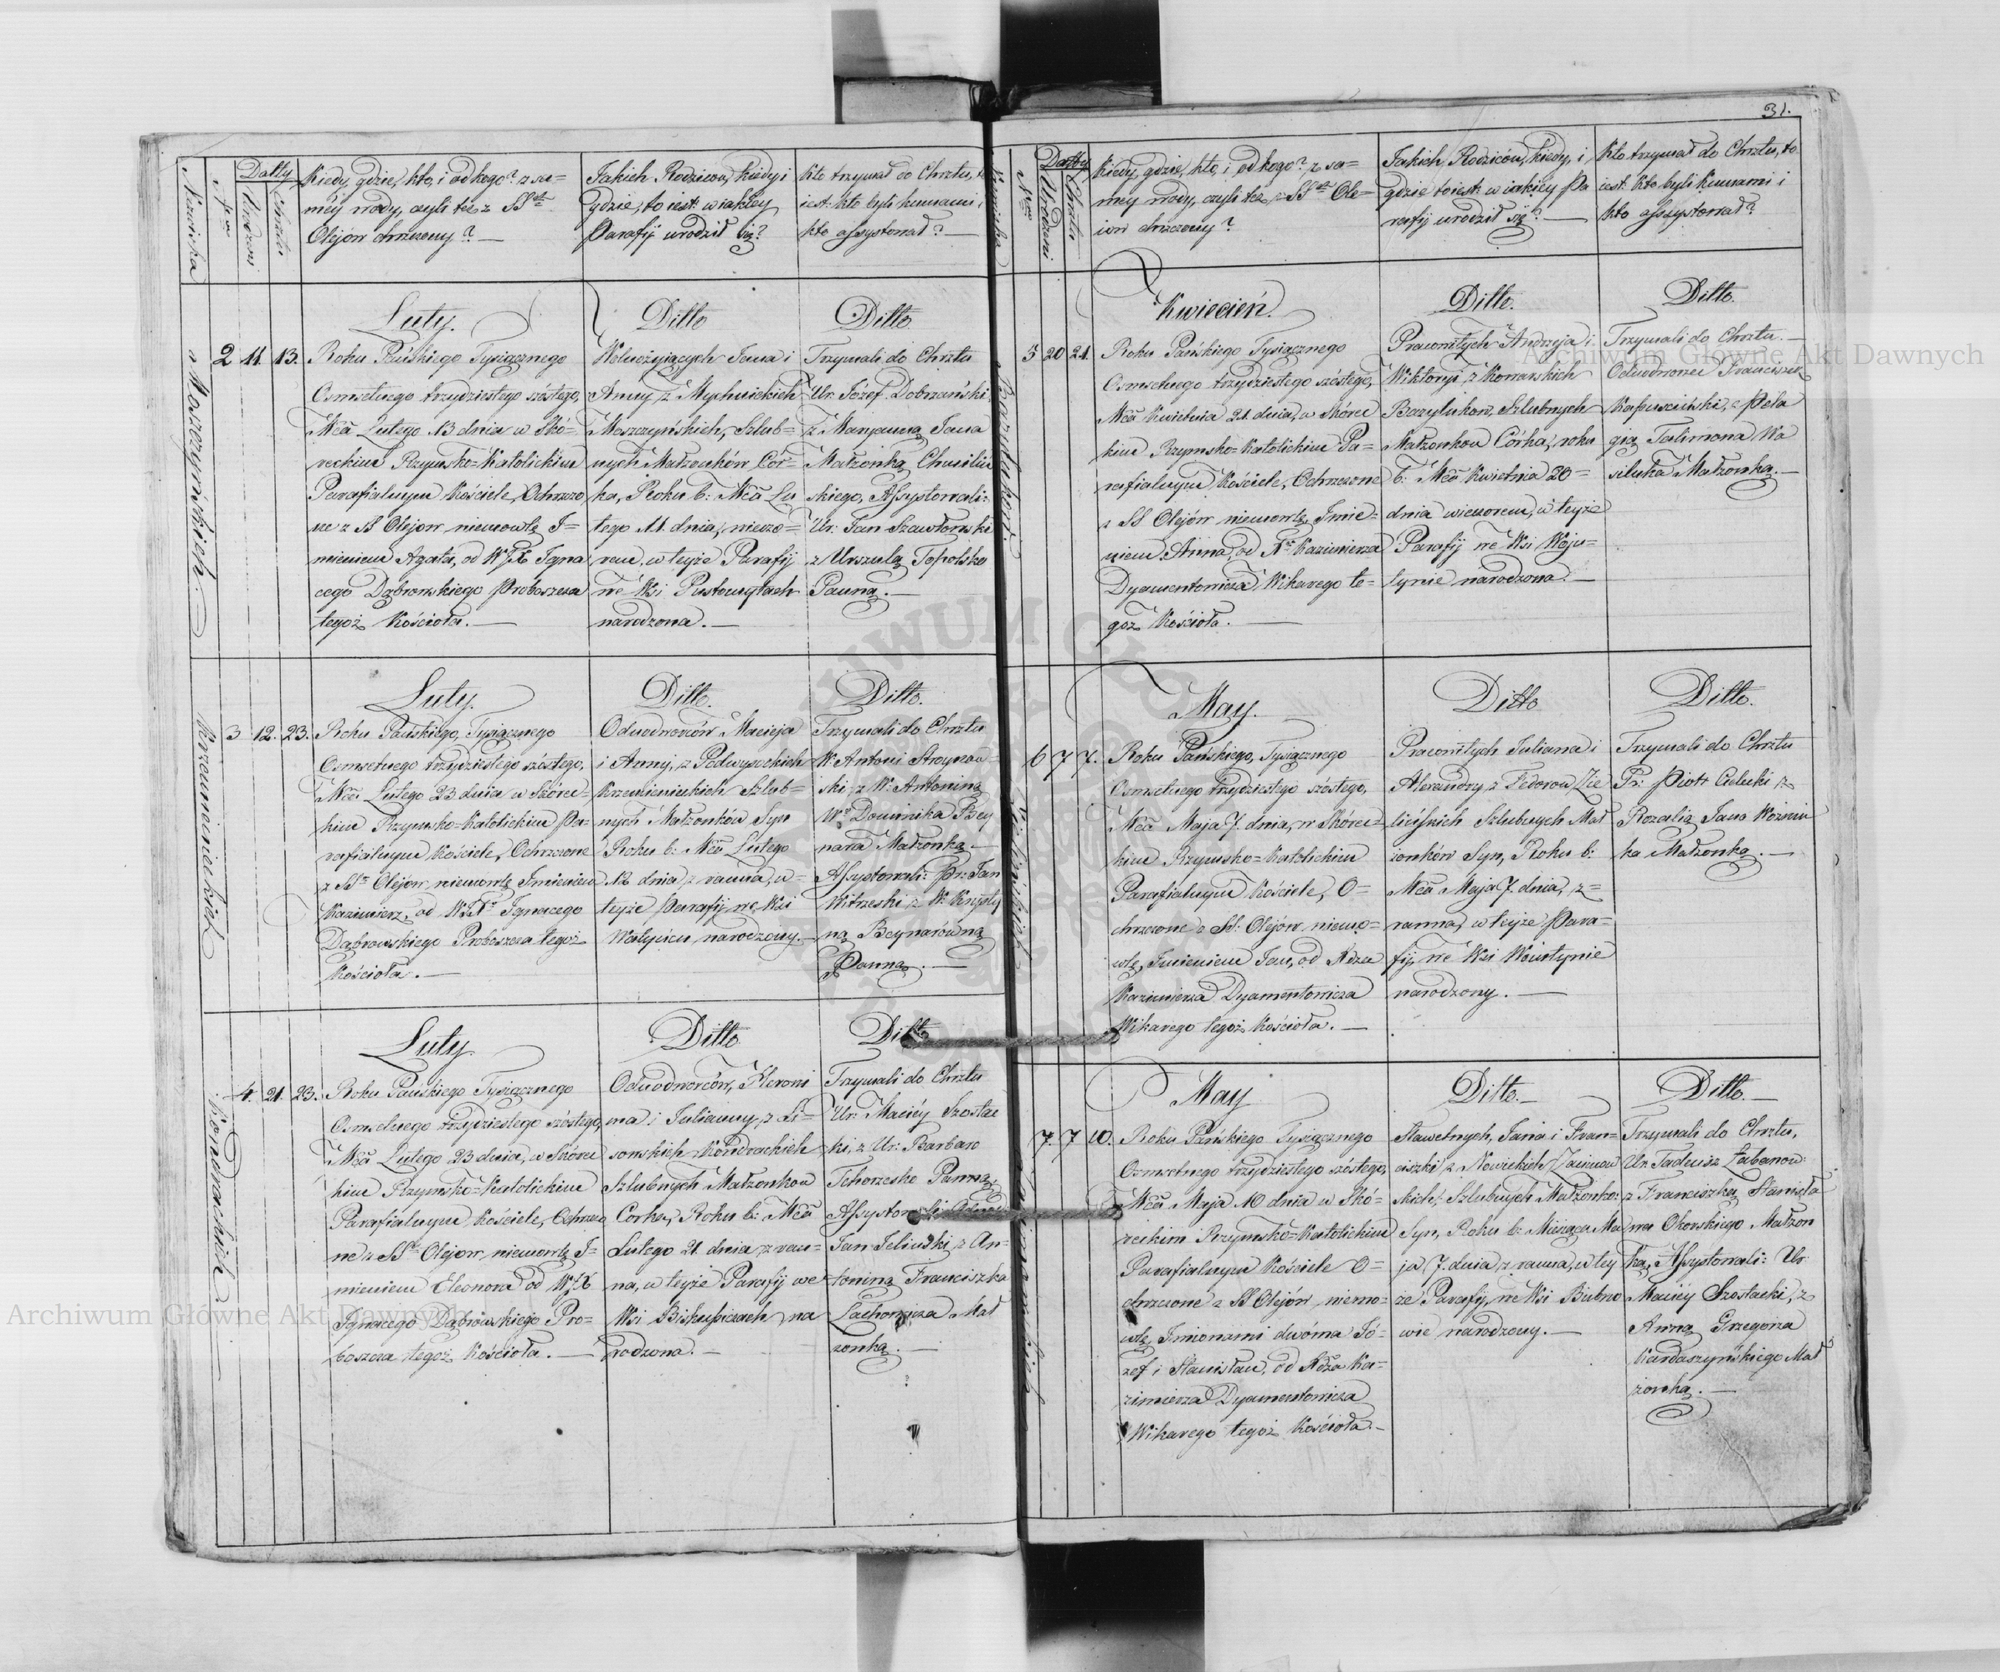 31.
Nazwiska
Nro
Datty
Urodzeni
Chrztu
Kiedy, gdzie, kto, i od kogo? z sa=
mey wody, czyli też z SSch
Olejów chrzczony? —
Jakich Rodziców, kiedy i
gdzie, to iest w iakiey
Parafij urodził się?
Kto trzymał do Chrztu, t.
iest: kto byli kumami,
kto assystował? —
Moszczyńskich.
2 11. 13.
Luty.
Roku Pańskiego Tysiącznego
Osmsetnego trzydziestego szóstego,
Mca Lutego 13 dnia w Skó=
reckim Rzymsko=Katolickim
Parafialnym Kościele, Ochrzczo
ne z SS Olejów niemowlę I=
mieniem Agata, od WJX Igna
cego Dąbrowskiego Proboszcza
tegoż Kościoła. —
Ditto
Jana i
Anny, z
Moszczyńskich, Szlub=
nych Małżonków Cór=
ka, Roku b: Mca Lu
tego 11. dnia,
rem, w teyże Parafij
we Wsi
narodzona. —
Ditto
Trzymali do Chrztu
Ur. Józef Dobrzański
z Maryanną Jana
Małżonką
skiego, Assystowali:
Ur: Jan
z Urszulą Topolską
Panną. —
Krzemienieckich
3 12. 23.
Luty.
Roku Pańskiego, Tysiącznego
Osmsetnego trzydziestego szóstego,
Mca Lutego 23 dnia w Skórec=
kim Rzymsko=Katolickim Pa=
rafialnym Kościele, Ochrzczone
z SSch Olejów niemowlę Imieniem
Kazimierz, od WJX Ignacego
Dąbrowskiego Proboszcza tegoż
Kościoła. —
Ditto.
Odnodworców Macieja
i Anny, z Podwysockich
Krzemienieckich Szlub=
nych Małżonków Syn
Roku b: Mca Lutego
12 dnia z rana, w=
teyże Parafij, we Wsi
narodzony. —
Ditto.
Trzymali do Chrztu
W. Antoni
ski, z W: Antoniną
Wo Dominika Bey
nara Małżonką. —
Assystowali: Pr. Jan
z W:
ną Beynarówną
Panną. —
Kondrackich
4. 21. 23.
Luty
Roku Pańskiego Tysiącznego
Osmsetnego trzydziestego szóstego,
Mca Lutego 23 dnia, w Skórec
kim Rzymsko=Katolickim
Parafialnym Kościele, Ochrzczo
ne z SSch Olejów, niemowlę I=
mieniem Eleonora od WJX
Ignacego Dąbrowskiego Pro=
boszcza tegoż Kościoła. —
Ditto
Odnodworców, Hieroni
ma i Julianny, z Li=
sowskich Kondrackich
Szlubnych Małżonków
Córka, Roku b: Mca
Lutego 21. dnia z ran=
na, w teyże Parafij we
Wsi Biskupiczach na
rodzona. —
Ditto
Trzymali do Chrztu
Ur: Maciéy Szostac
ki, z Ur: Barbarą
Panną
Assystowali
Jan z An=
toniną Franciszka
Lachowicza Mał
żonką. —
Nazwiska
Nro
Datty
Urodzeni
Chrztu
Kiedy, gdzie, kto, i od kogo? z sa=
mey wody, czyli też z SSch Ole=
iów chrzczony?
Jakich Rodziców, kiedy, i
gdzie to iest w iakiéy Pa
rafij urodził się? —
Kto trzymał do Chrztu, to
iest: Kto byli Kumami i
kto assystował?
Bazylukow.
5 20 21.
Kwiecień.
Roku Pańskiego Tysiącznego
Osmsetnego trzydziestego szóstego,
Mca Kwietnia 21. dnia, w Skórec
kim Rzymsko=Katolickim Pa=
rafialnym Kościele, Ochrzczone
z SS Olejów niemowlę Imie=
niem Anna, od Xa Kazimierza
Dyamentowicza Wikarego te=
goż Kościoła. —
Ditto.
Pracowitych Andrzeja i
Wiktoryi, z Konarskich
Bazyluków, Szlubnych
Małżonków Córka, roku
b: Mca Kwietnia 20=
dnia wieczorem, w teyże
Parafij we Wsi Woju=
tynie narodzona. —
Ditto.
Trzymali do Chrztu. —
Odnodworzec Franciszek
Kapuściński, z Pela
gią Talimona Wa
siluka Małżonką. —
6 7 7.
May.
Roku Pańskiego, Tysiącznego
Osmsetnego trzydziestego szóstego,
Mca Maja 7. dnia, w Skórec=
kim Rzymsko=Katolickim
Parafialnym Kościele, O=
chrzczone z SS: Olejów, niemo=
wlę, Imieniem Jan, od Xdza
Kazimierza Dyamentowicza
Wikarego tegoż Kościoła. —
Ditto
Pracowitych Juliana i
Alexandry z Fedorow
Szlubnych Mał
żonków Syn, Roku b:
Mca Maja 7. dnia, z=
ranna, w teyże Para=
fij, we Wsi Woiutynie
narodzony. —
Ditto.
Trzymali do Chrztu
Pr: Piotr Cielucki z
Rozalią Jana Woźniu
ka Małżonką. —
7 7 10.
May
Roku Pańskiego Tysiącznego
Osmsetnego trzydziestego szóstego,
Mca Maja 10 dnia w Skó=
reckim Rzymsko=Katolickim
Parafialnym Kościele O=
chrzczone z SS Olejów, niemo=
wlę, Imionami dwóma Jó=
zef i Stanisław, od Xdza Ka=
zimierza Dyamentowicza
Wikarego tegoż Kościoła. —
Ditto. —
Sławetnych, Jana i Fran=
ciszki z Nowickich
skich, Szlubnych Małżonko:
Syn, Roku b: Miesiąca Ma
ja 7. dnia z ranna, w tey
że Parafij, we Wsi Bubno
wie narodzony. —
Ditto. —
Trzymali do Chrztu,
Ur. Tadeusz Łabanow:
z Franciszką Stanisła
wa Okorskiego Małżon
ką, Assystowali: Ur
Maciéy Szostacki, z
Anną Grzegorza
Kardaszyńskiego Mał
żonką. —
Archiwum Główne Akt Dawnych
Archiwum Główne Akt Dawnych